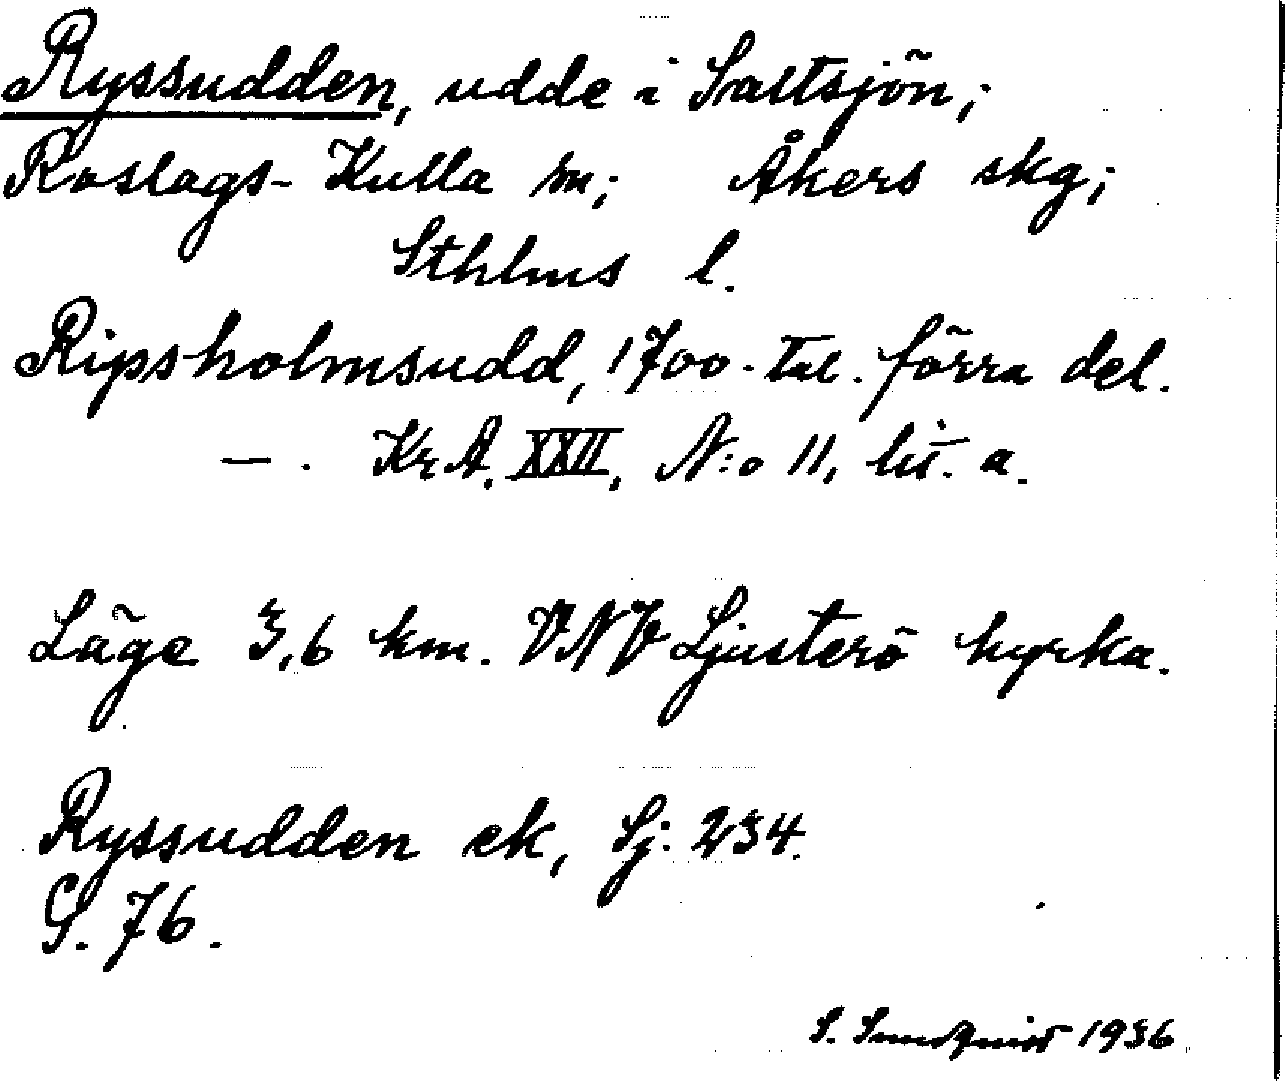 Ryssudden, udde i Saltsjön;
Roslags-Kulla sn; Åkers skg;
Sthlms l.
Ripsholmsudd, 1700-tal. förra del.
— . KrA. XXII, N:o 11, lit. a.
Läge 3,6 km. VNV Ljusterö kyrka.
Ryssudden ek, Sj: 234.
S. 76.
S. Sundquist 1936